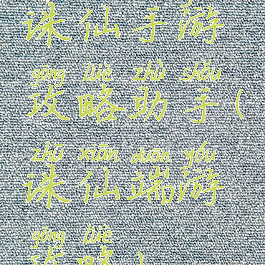 诛仙手游
gōng lüè zhù shǒu
攻略助手(
zhū xiān duān yóu
诛仙端游
gōng lüè
攻略)